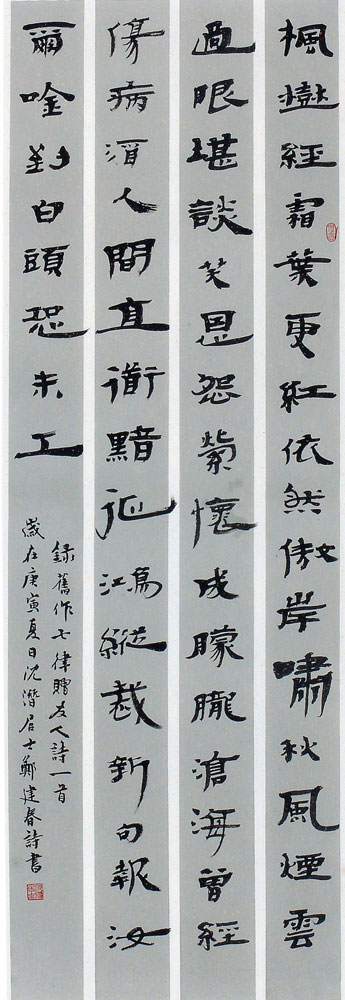 楓樹經霜葉更紅依然傲岸嘯秋風煙雲
過眼堪談笑恩怨縈懷成朦朧滄海曾經
傷病酒人間直衜黯征鴻縱裁新句報汝
爾唫到白頭恐未工
録舊作七律贈友人詩一首
歲在庚寅夏日沈潛居士鄭建春詩書